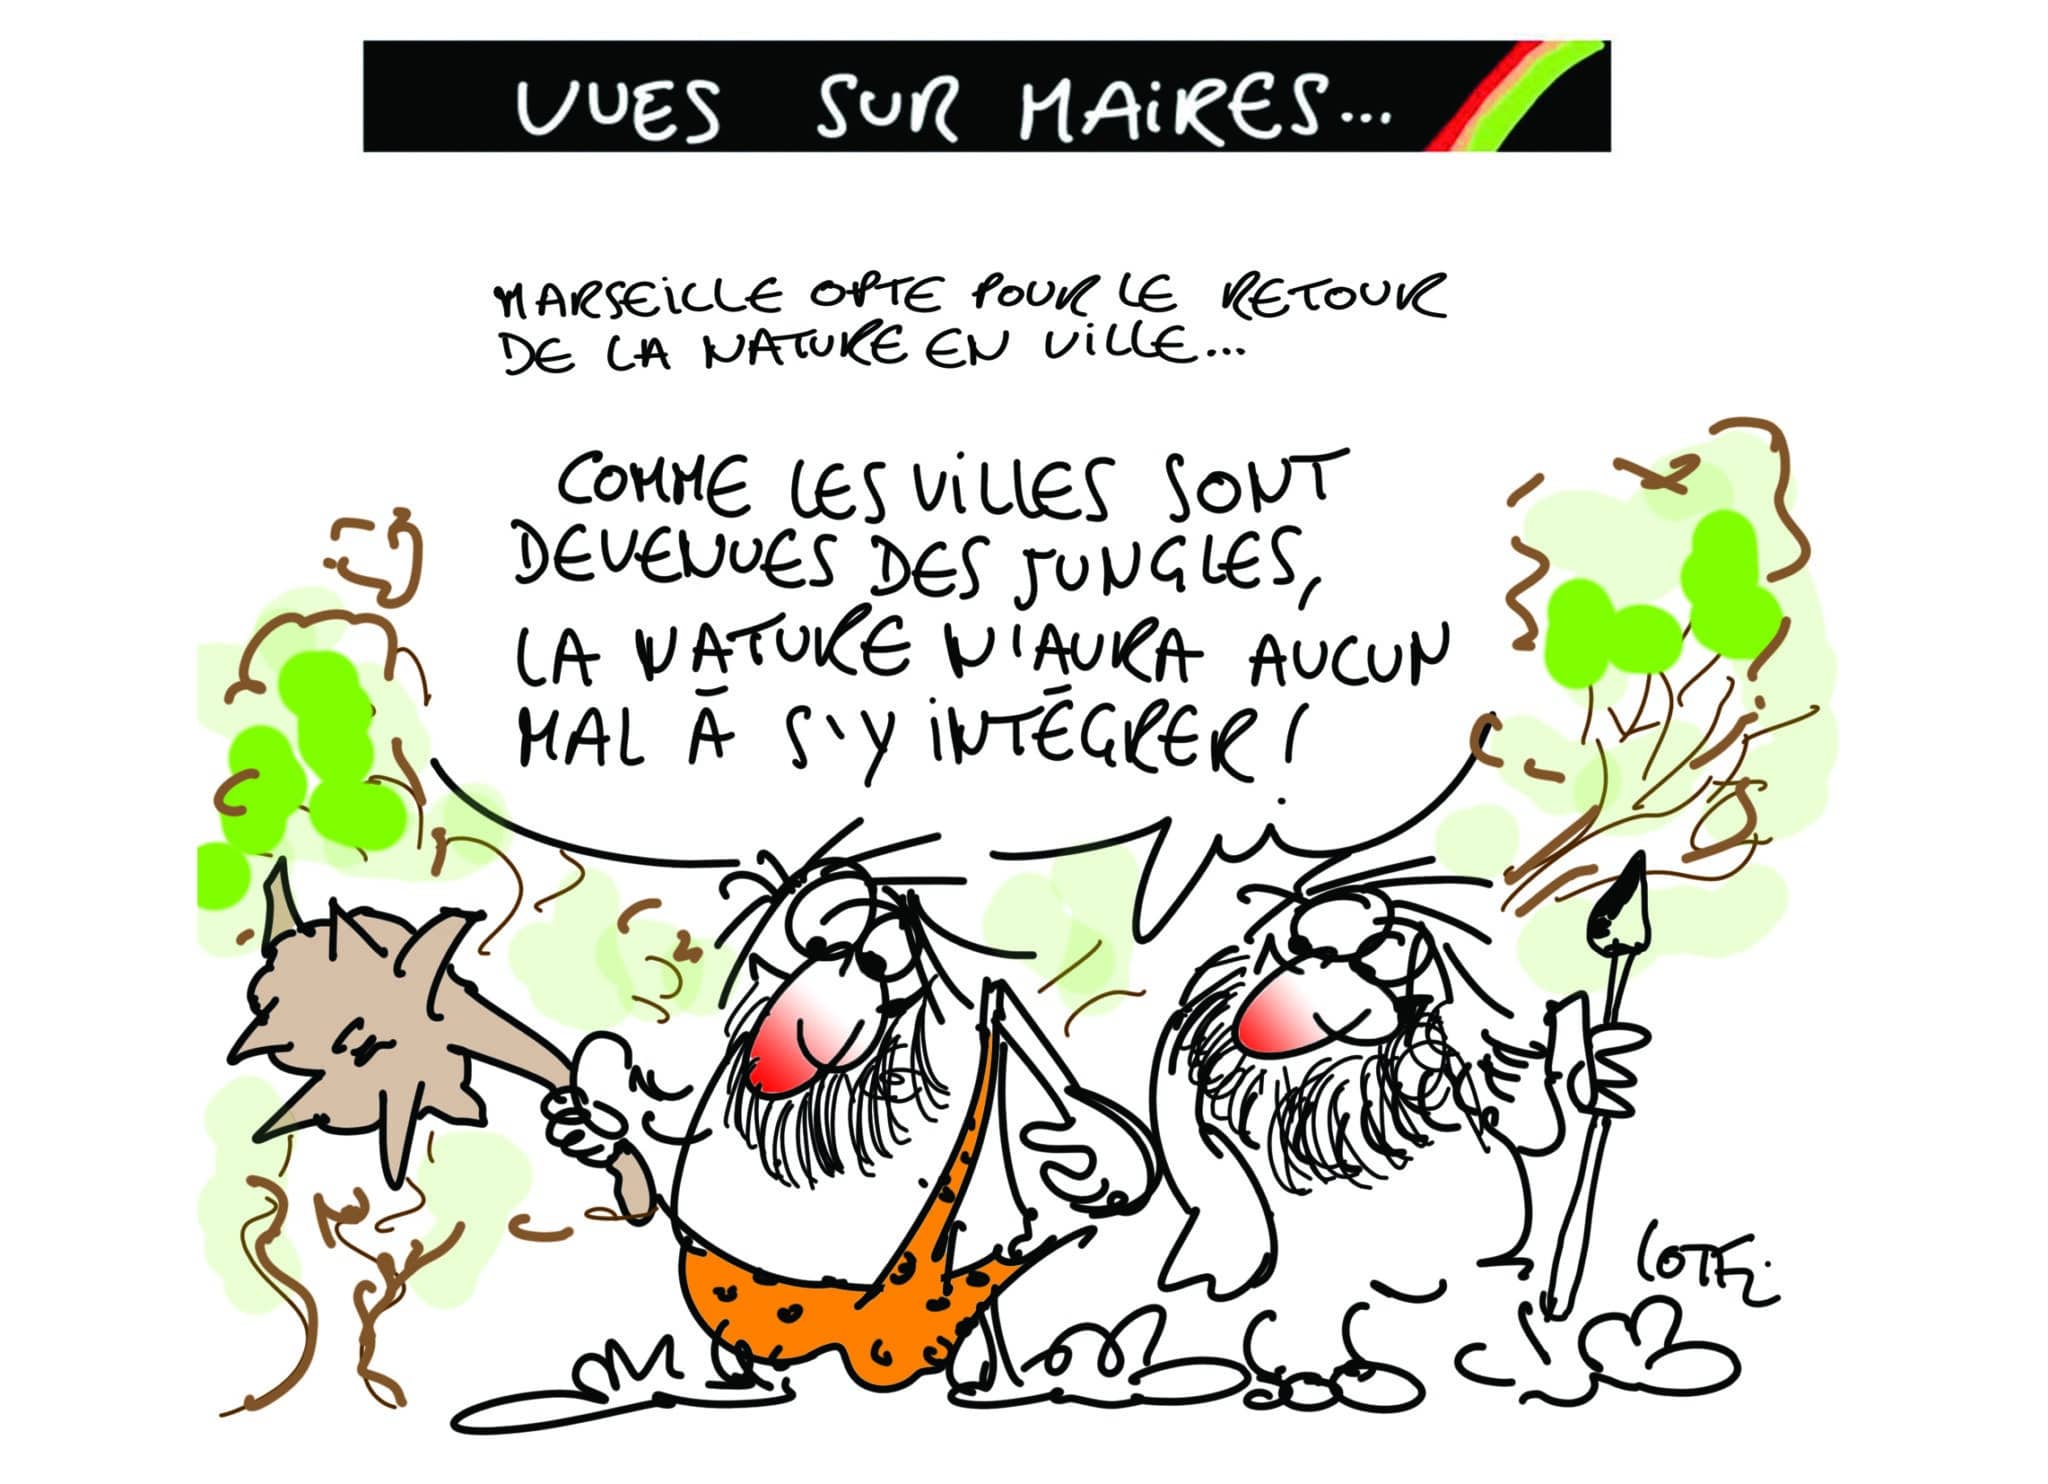 VUES SUR MAiRES...
MARSEiLLE OPTE POUR LE RETOUR
DE LA NATURE EN ViLLE...
COMME LES ViLLES SONT
DEVENUES DES JUNGLES,
LA NATURE N'AURA AUCUN
MAL À S'Y iNTÉGRER!